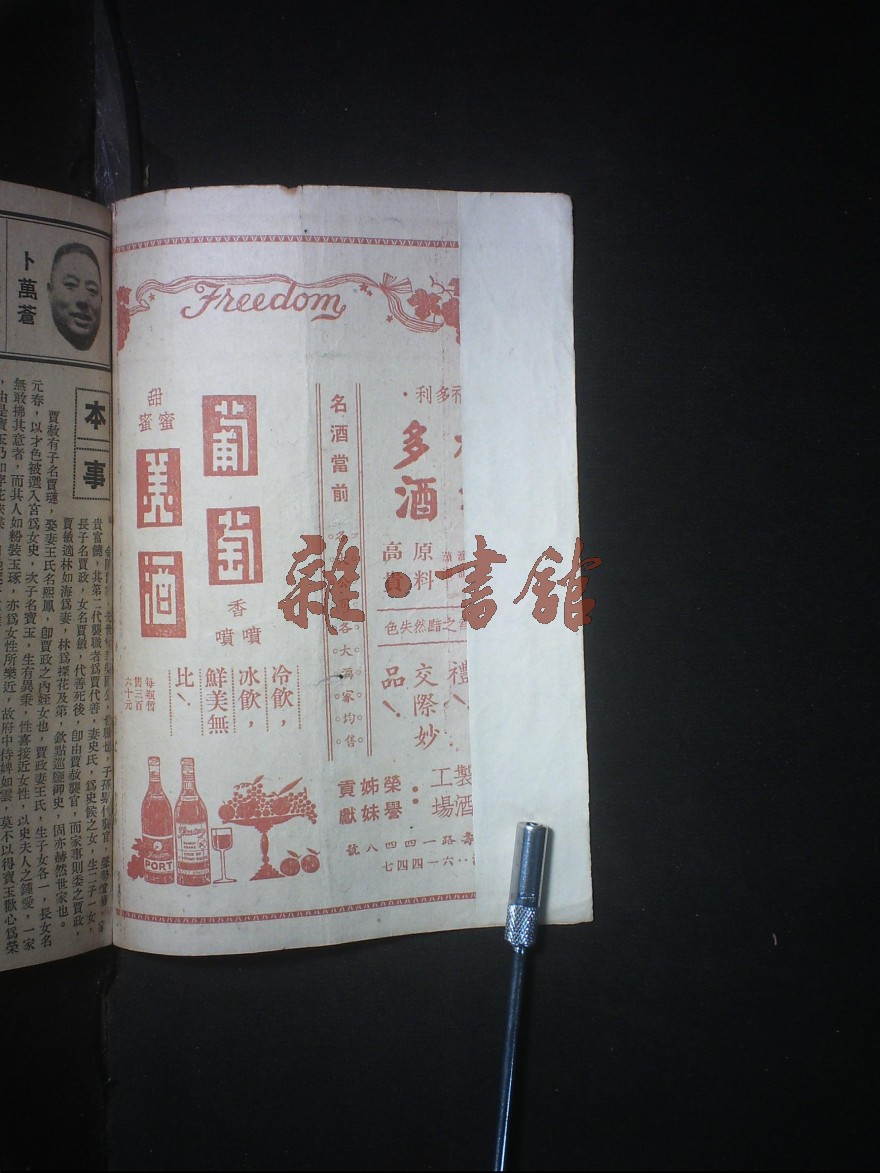 Freedom
利多福
多
酒
原料
高貴
之黯然失色
禮
交際妙
品
製酒
工場
榮譽
姊妹
貢獻
路一四四八號
六一四四七
名酒當前
各大酒家均售
葡萄
美酒
香
噴噴
甜
蜜蜜
冷飲，
冰飲，
鮮美無
比
每瓶暫
售三百
六十元
PORT
雜·書館
卜萬蒼
本事
貴富饒，其第二代襲職者爲賈代善，妻史氏，爲史侯之女，生二子一女，
長子名賈赦，女名賈敏，代善死後，卽由賈赦襲官，而家事則委之賈政，
賈敏適林如海爲妻，林爲探花及第，欽點巡鹽御史，固亦赫然世家也。
賈赦有子名賈璉，娶妻王氏名熙鳳，卽賈政之內姪女也，賈政妻王氏，生子女各一，長女名
元春，以才色被選入宮爲女史，次子名寶玉，生有異秉，性喜接近女性，以史夫人之鍾愛，一家
無敢拂其意者，而其人如粉裝玉琢，亦爲女性所樂近，故府中侍婢如雲，莫不以得寶玉歡心爲榮